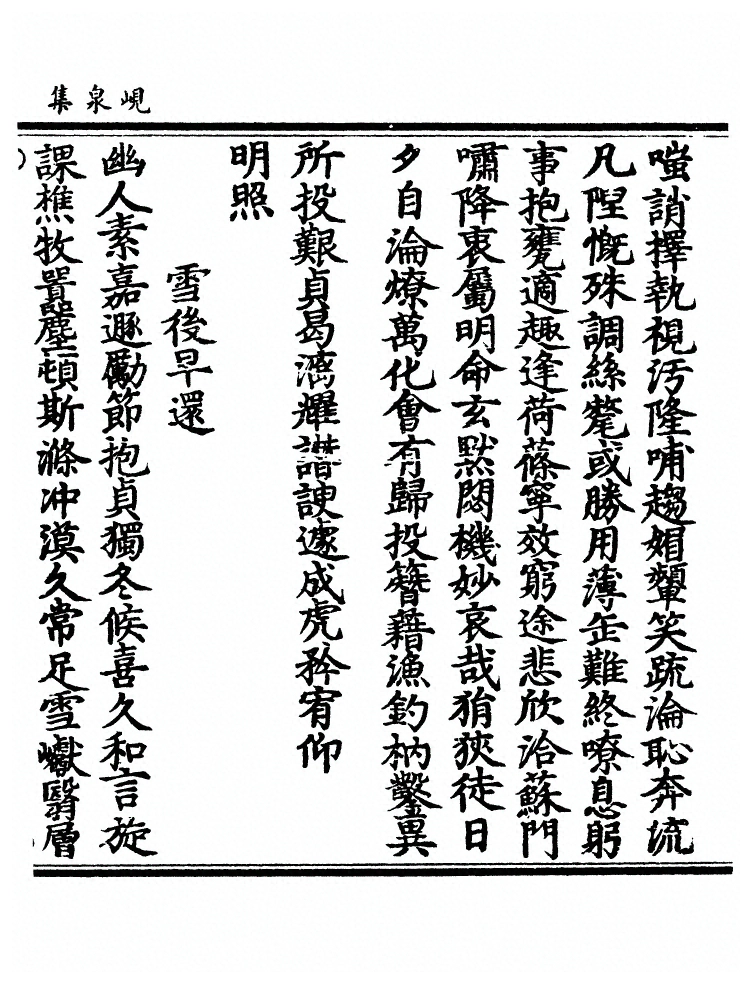 峴泉集
嗤誚擇執視汚隆哺趨媢顰笑疏淪恥奔流
凡陞慨殊調絲鼈或勝用薄缶難終嘹息躬
事抱甕適趣逢荷蓧寧效窮途悲欣洽蘇門
嘯降衷屬明命玄默閟機妙哀哉狷狹徒日
夕自淪燎萬化會有歸投簪藉漁釣枘鑿異
所投艱貞曷漓燿譖諛遽成虎矜宥仰
明照
雪後早還
幽人素嘉遯勵節抱貞獨冬候喜久和言旋
課樵牧囂塵頓斯滌冲漠久常足雪巘翳層